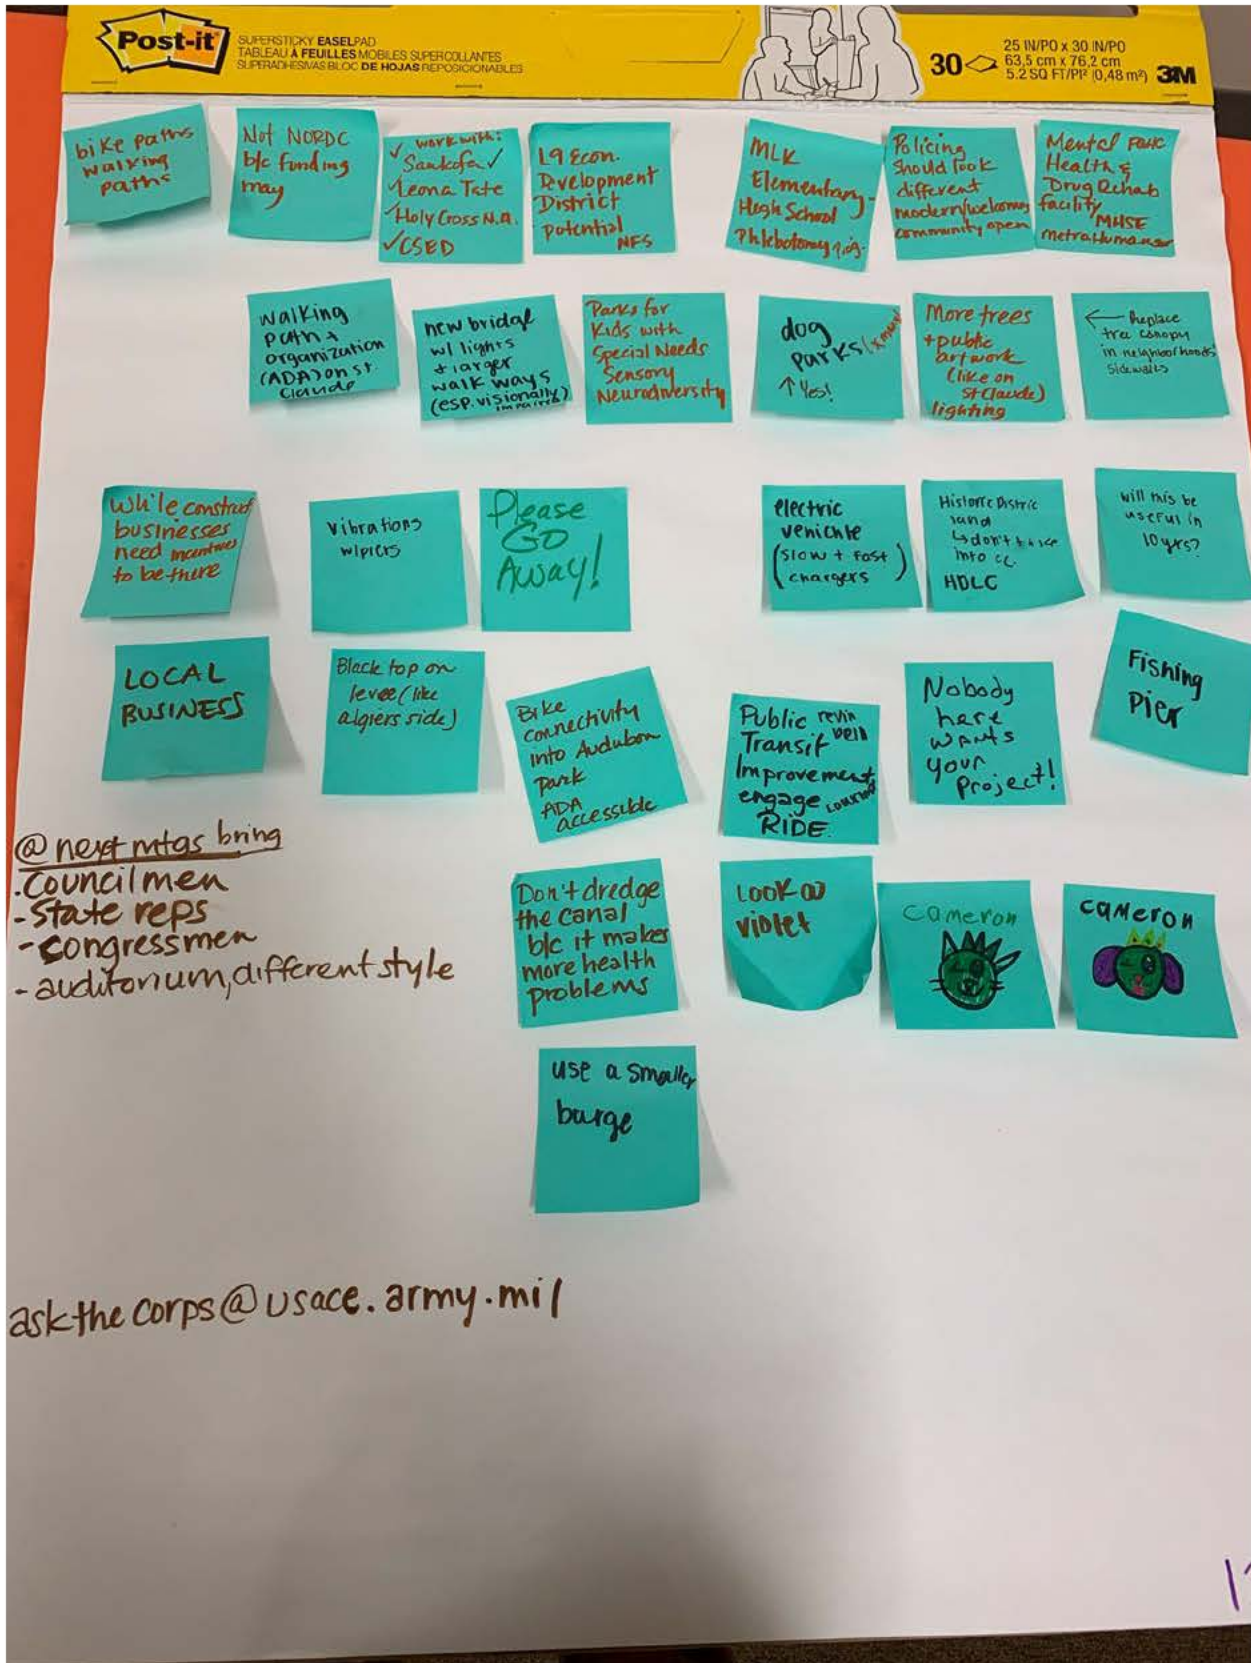 Post-it
SUPERSTICKY EASELPAD
TABLEAU À FEUILLES MOBILES SUPERCOLLANTES
SUPERADHESIVAS BLOC DE HOJAS REPOSICIONABLES
30
25 IN/PO x 30 IN/PO
63,5 cm x 76,2 cm
5.2 SQ FT/PI² (0,48 m²)
3M
bike paths
walking
paths
Not NORDC
b/c funding
may
✓ work with:
Sankofa ✓
✓ Leona Tate
✓ Holy Cross N.A.
✓ CSED
L9 Econ.
Development
District
potential
NFS
MLK
Elementary-
High School
Phlebotomy
Policing
should look
different
modern/welcoming
community open
Mental
Health &
Drug Rehab
facility
MHSE
walking
path +
organization
(ADA) on St.
Claude
new bridge
w/ lights
+ larger
walk ways
(esp. visionally
impaired)
Parks for
Kids with
Special Needs
Sensory
Neurodiversity
dog
parks
↑ Yes!
More trees
+ public
artwork
(like on
St Claude)
lighting
← Replace
tree canopy
in neighborhoods
sidewalks
While construct
businesses
need incentives
to be there
vibrations
w/piers
Please
GO
Away!
electric
vehichle
(slow + fast
chargers)
Historic District
land
↳ don't
into
HDLC
will this be
useful in
10 yrs?
LOCAL
BUSINESS
Black top on
levee (like
algiers side)
Bike
connectivity
into Audubon
Park
ADA
accessible
Public
Transit
Improvement
engage
RIDE
Nobody
here
wants
your
Project!
Fishing
Pier
@ next mtgs bring
- Councilmen
- State reps
- congressmen
- auditorium, different style
Don't dredge
the canal
b/c it makes
more health
problems
LOOK @
violet
Cameron
cameron
use a smaller
barge
askthecorps@usace.army.mil